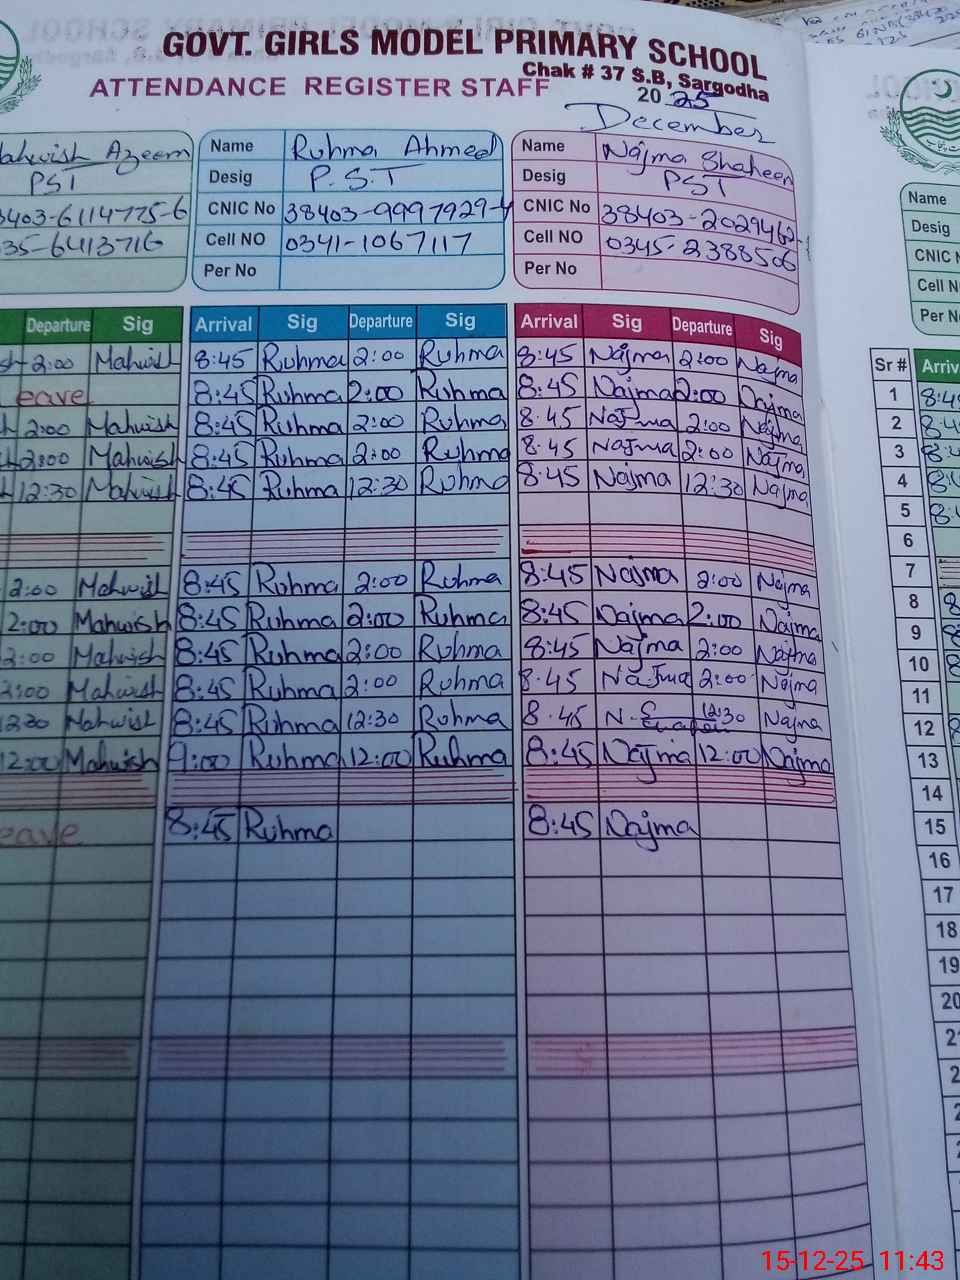 GOVT. GIRLS MODEL PRIMARY SCHOOL
Chak # 37 S.B, Sargodha
ATTENDANCE REGISTER STAFF
20 25
December
Mahwish Azeem
PST
38403-6114775-6
35-6413716
Name Ruhma Ahmed
Desig P.S.T
CNIC No 38403-9997929-4
Cell NO 0341-1067117
Per No
Name Najma Shaheen
Desig PST
CNIC No 38403-2029462-
Cell NO 0345-2388506
Per No
Name
Desig
CNIC N
Cell N
Per No
Departure Sig Arrival Sig Departure Sig Arrival Sig Departure Sig
Sr # Arriv
2:00 Mahwish 8:45 Ruhma 2:00 Ruhma 8:45 Najma 2:00 Najma
1 8:45
eave 8:45 Ruhma 2:00 Ruhma 8:45 Najma 2:00 Najma
2 8:4
2:00 Mahwish 8:45 Ruhma 2:00 Ruhma 8.45 Najma 2:00 Najma
3
2:00 Mahwish 8:45 Ruhma 2:00 Ruhma 8.45 Najma 2:00 Najma
4
12:30 Mahwish 8:45 Ruhma 12:30 Ruhma 8:45 Najma 12:30 Najma
5 8:4
6
7
2:00 Mahwish 8:45 Ruhma 2:00 Ruhma 8:45 Najma 2:00 Najma
8
2:00 Mahwish 8:45 Ruhma 2:00 Ruhma 8:45 Najma 2:00 Najma
9
2:00 Mahwish 8:45 Ruhma 2:00 Ruhma 8:45 Najma 2:00 Najma
10
2:00 Mahwish 8:45 Ruhma 2:00 Ruhma 8.45 Najma 2:00 Najma
11
12:30 Mahwish 8:45 Ruhma 12:30 Ruhma 8.45 N.S 12:30 Najma
12
12:00 Mahwish 9:00 Ruhma 12:00 Ruhma 8:45 Najma 12:00 Najma
13
14
eave 8:45 Ruhma 8:45 Najma
15
16
17
18
19
20
15-12-25 11:43